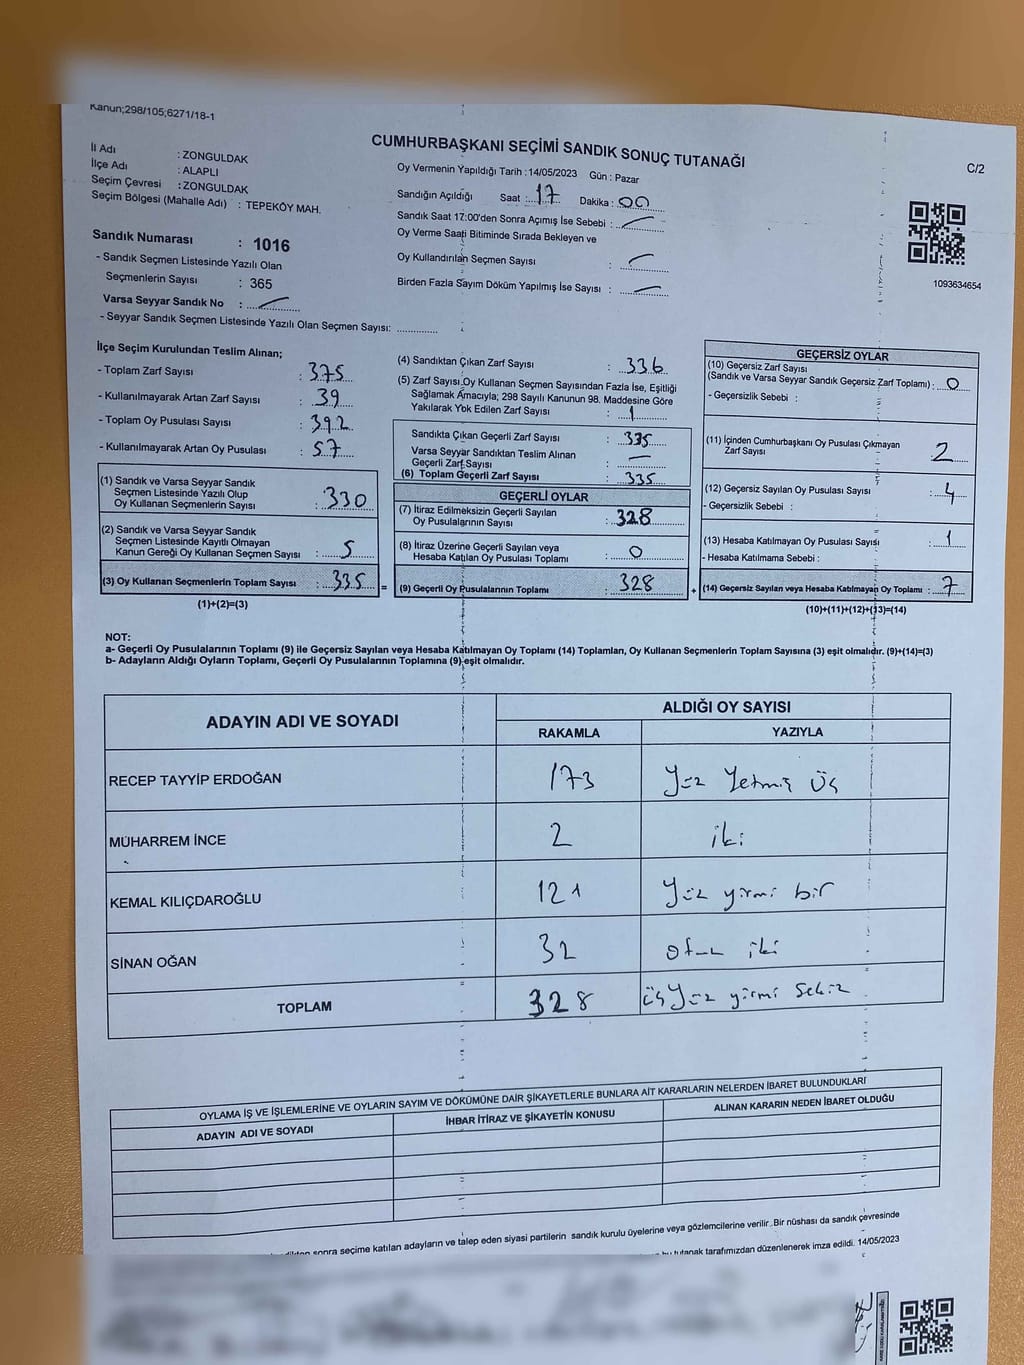 Kanun;298/105;6271/18-1
CUMHURBAŞKANI SEÇİMİ SANDIK SONUÇ TUTANAĞI
C/2
İl Adı : ZONGULDAK
İlçe Adı : ALAPLI
Seçim Çevresi : ZONGULDAK
Seçim Bölgesi (Mahalle Adı) : TEPEKÖY MAH.
Sandık Numarası : 1016
- Sandık Seçmen Listesinde Yazılı Olan
Seçmenlerin Sayısı : 365
Varsa Seyyar Sandık No :
- Seyyar Sandık Seçmen Listesinde Yazılı Olan Seçmen Sayısı:
Oy Vermenin Yapıldığı Tarih : 14/05/2023 Gün : Pazar
Sandığın Açıldığı Saat : 17 Dakika : 00
Sandık Saat 17:00'den Sonra Açımış İse Sebebi :
Oy Verme Saati Bitiminde Sırada Bekleyen ve
Oy Kullandırılan Seçmen Sayısı :
Birden Fazla Sayım Döküm Yapılmış İse Sayısı :
1093634654
İlçe Seçim Kurulundan Teslim Alınan;
- Toplam Zarf Sayısı : 375
- Kullanılmayarak Artan Zarf Sayısı : 39
- Toplam Oy Pusulası Sayısı : 392
- Kullanılmayarak Artan Oy Pusulası : 57
(1) Sandık ve Varsa Seyyar Sandık
Seçmen Listesinde Yazılı Olup
Oy Kullanan Seçmenlerin Sayısı : 330
(2) Sandık ve Varsa Seyyar Sandık
Seçmen Listesinde Kayıtlı Olmayan
Kanun Gereği Oy Kullanan Seçmen Sayısı : 5
(3) Oy Kullanan Seçmenlerin Toplam Sayısı : 335 =
(1)+(2)=(3)
(4) Sandıktan Çıkan Zarf Sayısı : 336
(5) Zarf Sayısı Oy Kullanan Seçmen Sayısından Fazla İse, Eşitliği
Sağlamak Amacıyla; 298 Sayılı Kanunun 98. Maddesine Göre
Yakılarak Yok Edilen Zarf Sayısı : 1
Sandıkta Çıkan Geçerli Zarf Sayısı : 335
Varsa Seyyar Sandıktan Teslim Alınan
Geçerli Zarf Sayısı :
(6) Toplam Geçerli Zarf Sayısı : 335
GEÇERLİ OYLAR
(7) İtiraz Edilmeksizin Geçerli Sayılan
Oy Pusulalarının Sayısı : 328
(8) İtiraz Üzerine Geçerli Sayılan veya
Hesaba Katılan Oy Pusulası Toplamı : 0
(9) Geçerli Oy Pusulalarının Toplamı : 328 +
GEÇERSİZ OYLAR
(10) Geçersiz Zarf Sayısı
(Sandık ve Varsa Seyyar Sandık Geçersiz Zarf Toplamı) : 0
- Geçersizlik Sebebi :
(11) İçinden Cumhurbaşkanı Oy Pusulası Çıkmayan
Zarf Sayısı : 2
(12) Geçersiz Sayılan Oy Pusulası Sayısı : 4
- Geçersizlik Sebebi :
(13) Hesaba Katılmayan Oy Pusulası Sayısı : 1
- Hesaba Katılmama Sebebi :
(14) Geçersiz Sayılan veya Hesaba Katılmayan Oy Toplamı : 7
(10)+(11)+(12)+(13)=(14)
NOT:
a- Geçerli Oy Pusulalarının Toplamı (9) ile Geçersiz Sayılan veya Hesaba Katılmayan Oy Toplamı (14) Toplamları, Oy Kullanan Seçmenlerin Toplam Sayısına (3) eşit olmalıdır. (9)+(14)=(3)
b- Adayların Aldığı Oyların Toplamı, Geçerli Oy Pusulalarının Toplamına (9) eşit olmalıdır.
ADAYIN ADI VE SOYADI ALDIĞI OY SAYISI
RAKAMLA YAZIYLA
RECEP TAYYİP ERDOĞAN 173 Yüz Yetmiş Üç
MUHARREM İNCE 2 iki
KEMAL KILIÇDAROĞLU 121 Yüz yirmi bir
SİNAN OĞAN 32 otuz iki
TOPLAM 328 üçYüz yirmi sekiz
OYLAMA İŞ VE İŞLEMLERİNE VE OYLARIN SAYIM VE DÖKÜMÜNE DAİR ŞİKAYETLERLE BUNLARA AİT KARARLARIN NELERDEN İBARET BULUNDUKLARI
ADAYIN ADI VE SOYADI İHBAR İTİRAZ VE ŞİKAYETİN KONUSU ALINAN KARARIN NEDEN İBARET OLDUĞU
sonra seçime katılan adayların ve talep eden siyasi partilerin sandık kurulu üyelerine veya gözlemcilerine verilir. Bir nüshası da sandık çevresinde
bu tutanak tarafımızdan düzenlenerek imza edildi. 14/05/2023